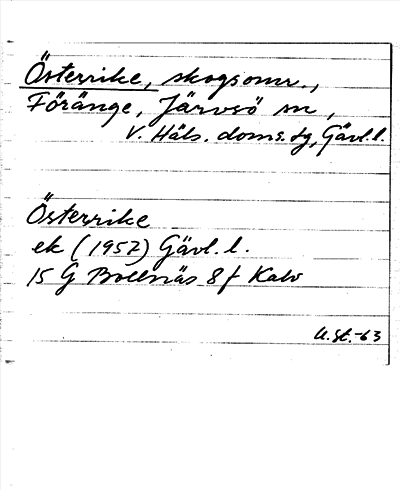 Österrike, skogsomr.,
Föränge, Järvsö sn,
V. Häls. doms.dg, Gävl.l.
Österrike
ek (1957) Gävl. l.
15 G Bollnäs 8 f Kalv
U.St.-63